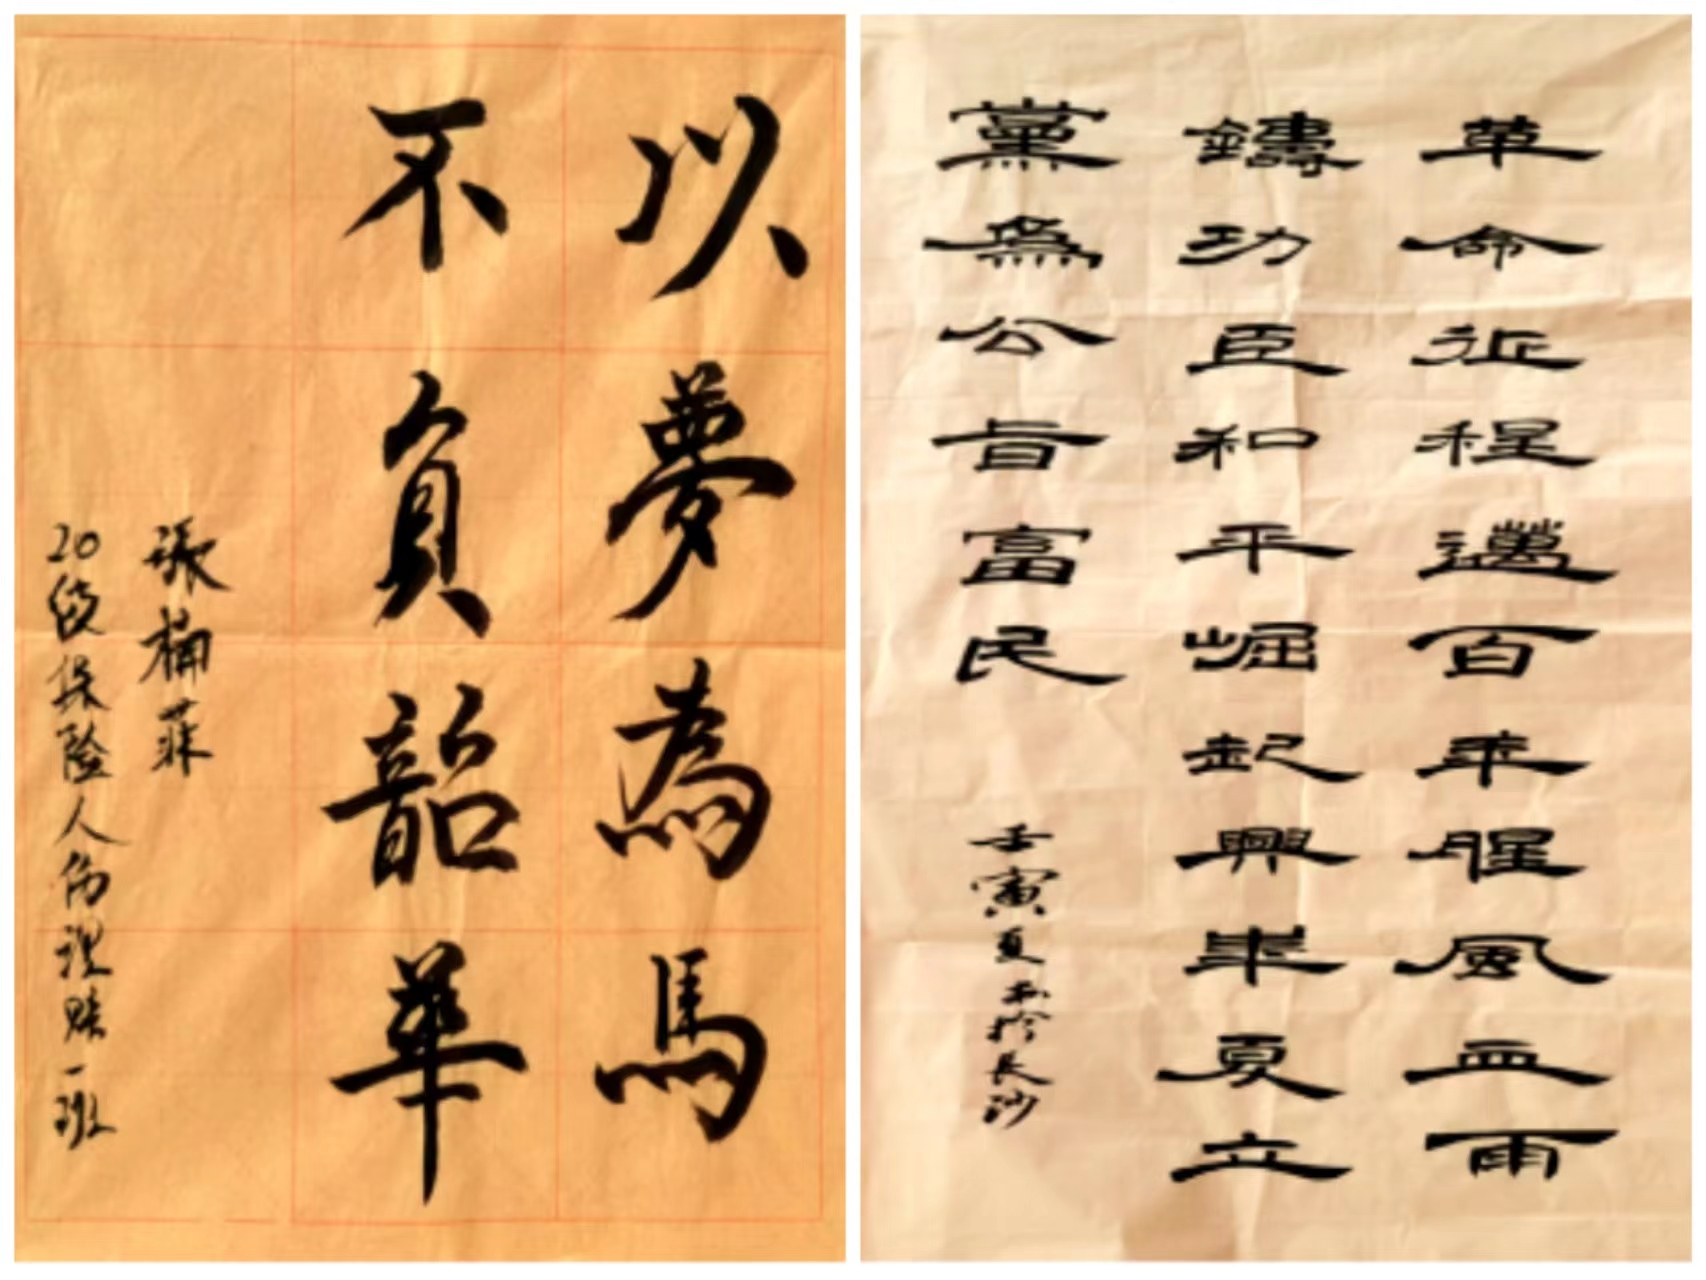 以夢為馬
不負韶華
張楠菲
20级保险人伤理赔一班
革命征程邁百年腥風血雨
鑄功臣和平崛起興華夏立
黨為公旨富民
壬寅夏書於長沙